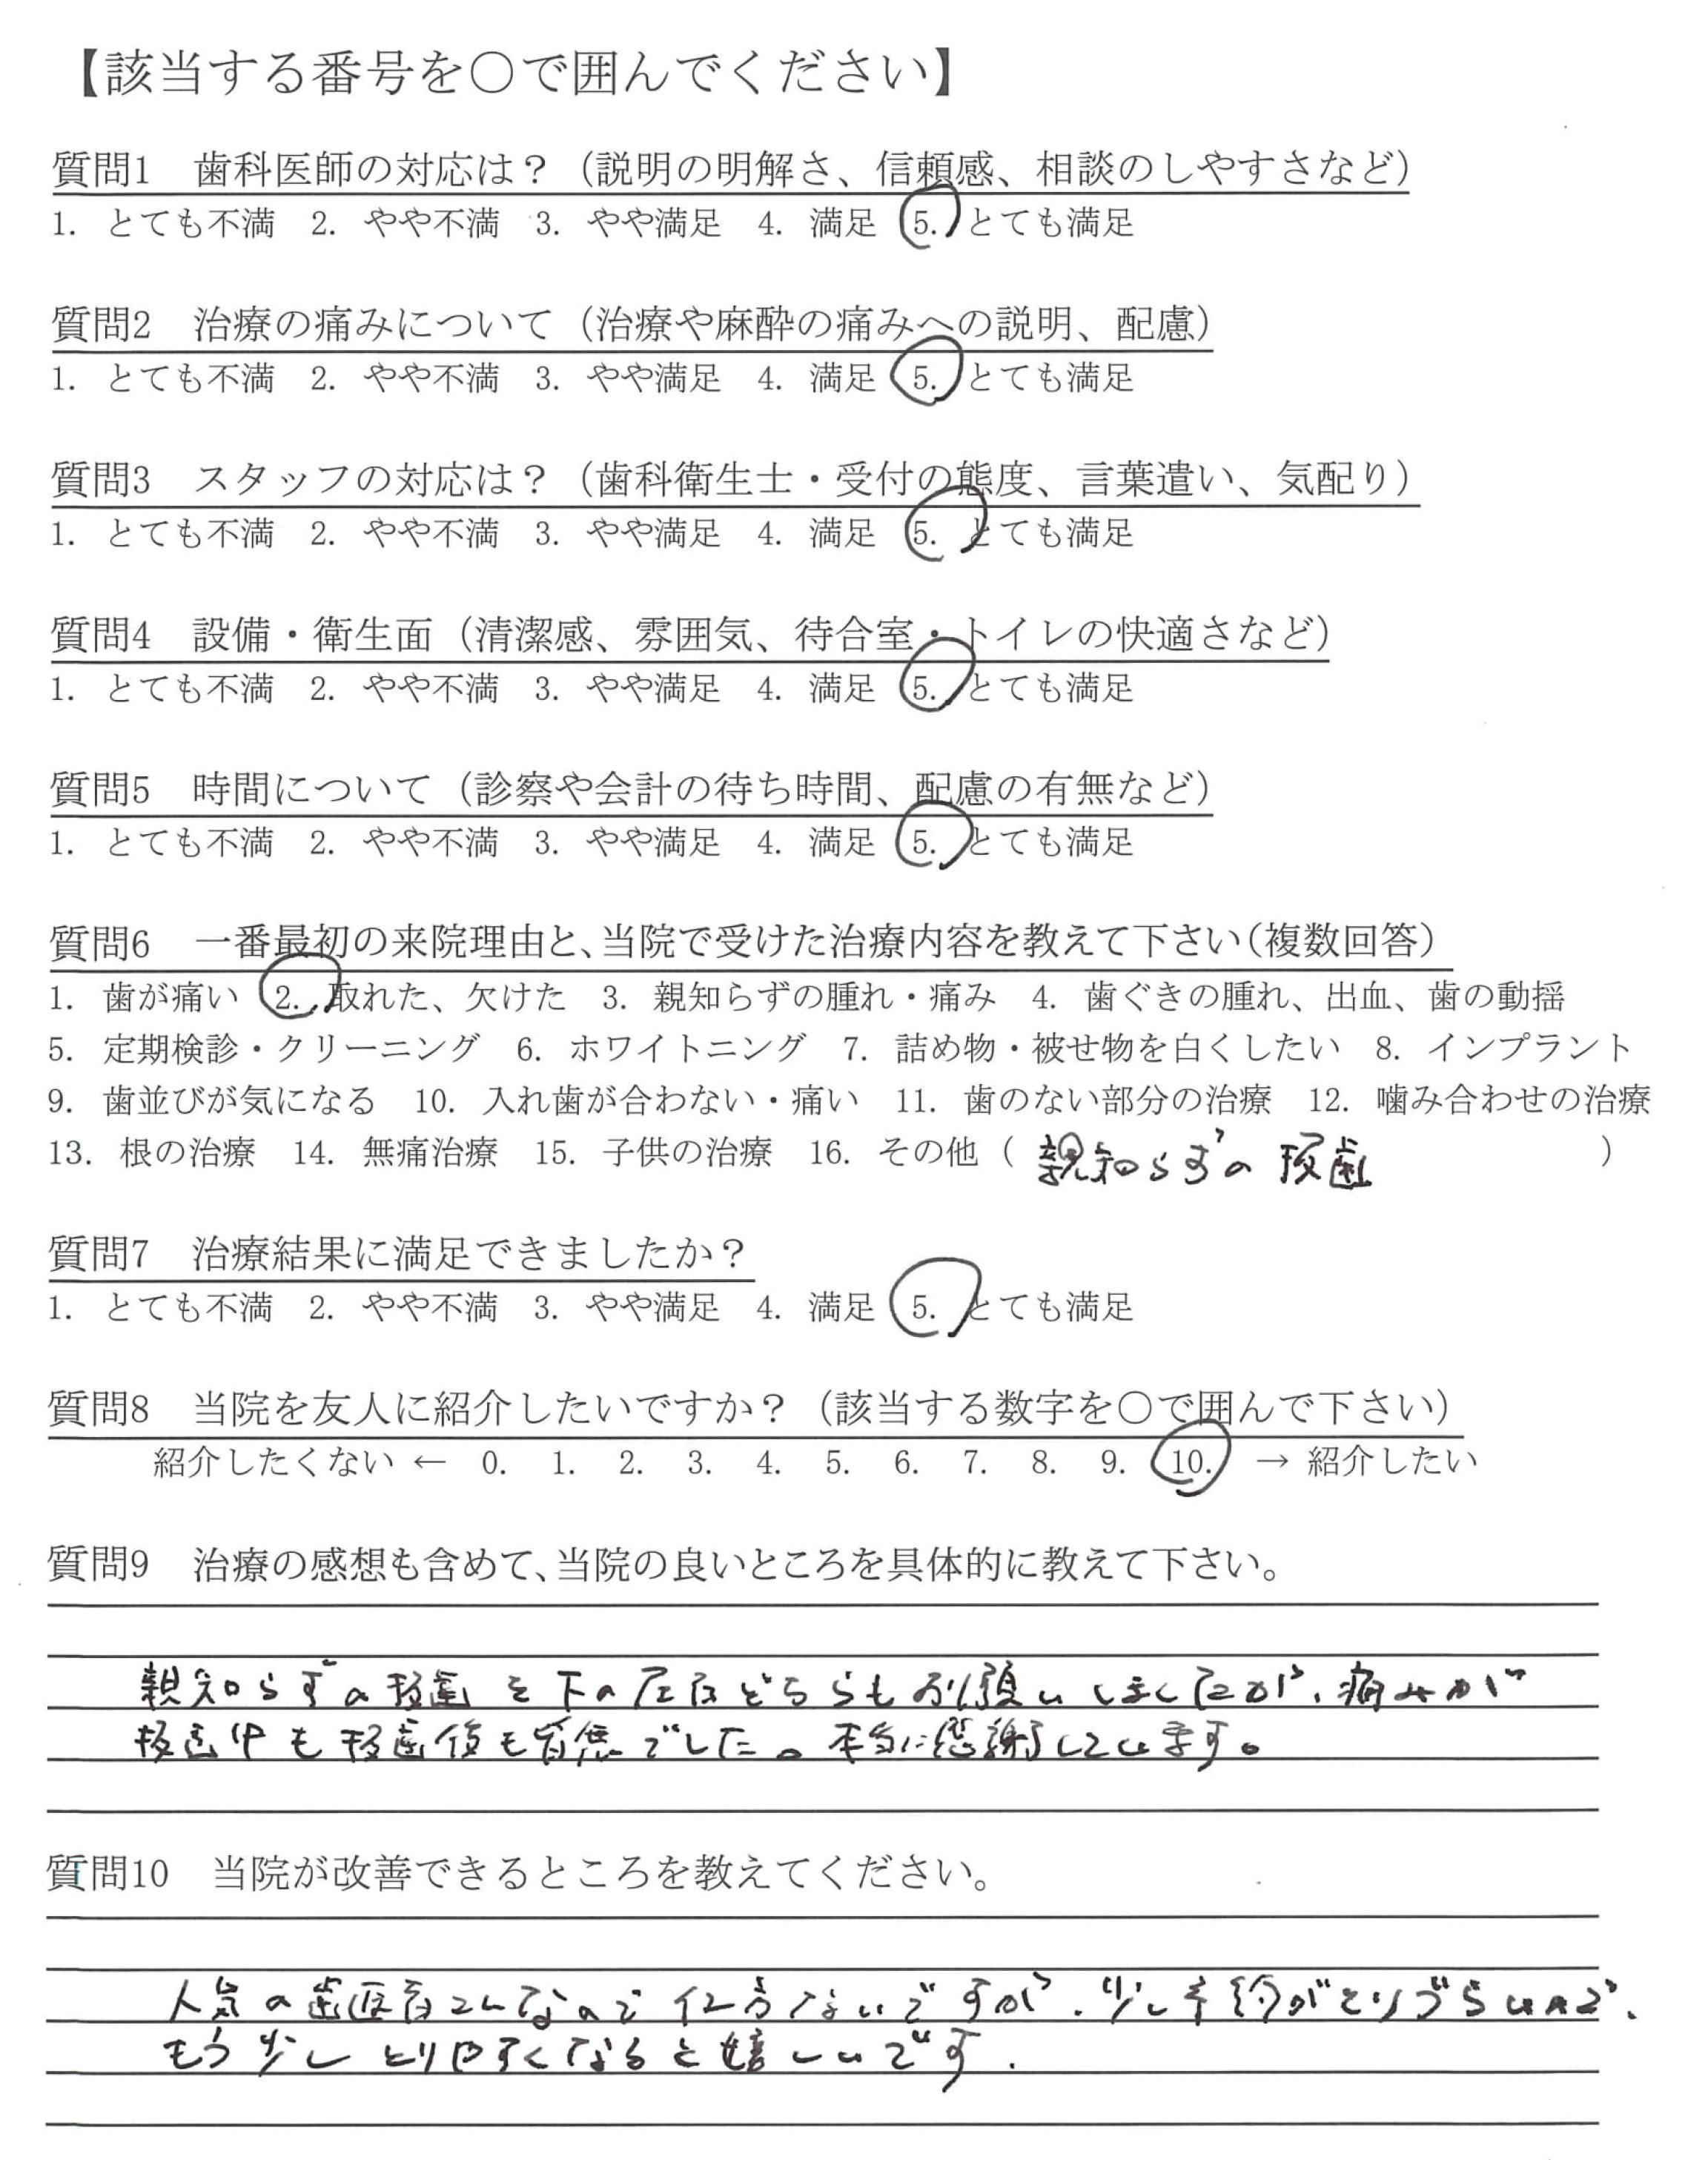 【該当する番号を○で囲んでください】
質問1 歯科医師の対応は？（説明の明解さ、信頼感、相談のしやすさなど）
1. とても不満 2. やや不満 3. やや満足 4. 満足 5. とても満足
質問2 治療の痛みについて（治療や麻酔の痛みへの説明、配慮）
1. とても不満 2. やや不満 3. やや満足 4. 満足 5. とても満足
質問3 スタッフの対応は？（歯科衛生士・受付の態度、言葉遣い、気配り）
1. とても不満 2. やや不満 3. やや満足 4. 満足 5. とても満足
質問4 設備・衛生面（清潔感、雰囲気、待合室・トイレの快適さなど）
1. とても不満 2. やや不満 3. やや満足 4. 満足 5. とても満足
質問5 時間について（診察や会計の待ち時間、配慮の有無など）
1. とても不満 2. やや不満 3. やや満足 4. 満足 5. とても満足
質問6 一番最初の来院理由と、当院で受けた治療内容を教えて下さい（複数回答）
1. 歯が痛い 2. 取れた、欠けた 3. 親知らずの腫れ・痛み 4. 歯ぐきの腫れ、出血、歯の動揺
5. 定期検診・クリーニング 6. ホワイトニング 7. 詰め物・被せ物を白くしたい 8. インプラント
9. 歯並びが気になる 10. 入れ歯が合わない・痛い 11. 歯のない部分の治療 12. 噛み合わせの治療
13. 根の治療 14. 無痛治療 15. 子供の治療 16. その他（ 親知らずの抜歯 ）
質問7 治療結果に満足できましたか？
1. とても不満 2. やや不満 3. やや満足 4. 満足 5. とても満足
質問8 当院を友人に紹介したいですか？（該当する数字を○で囲んで下さい）
紹介したくない ← 0. 1. 2. 3. 4. 5. 6. 7. 8. 9. 10. → 紹介したい
質問9 治療の感想も含めて、当院の良いところを具体的に教えて下さい。
親知らずの抜歯を下の左右どちらもお願いしましたが、痛みが
抜歯中も抜歯後も皆無でした。本当に感謝しています。
質問10 当院が改善できるところを教えてください。
人気の歯医者さんなので仕方ないですが、少し予約がとりづらいので、
もう少しとりやすくなると嬉しいです.